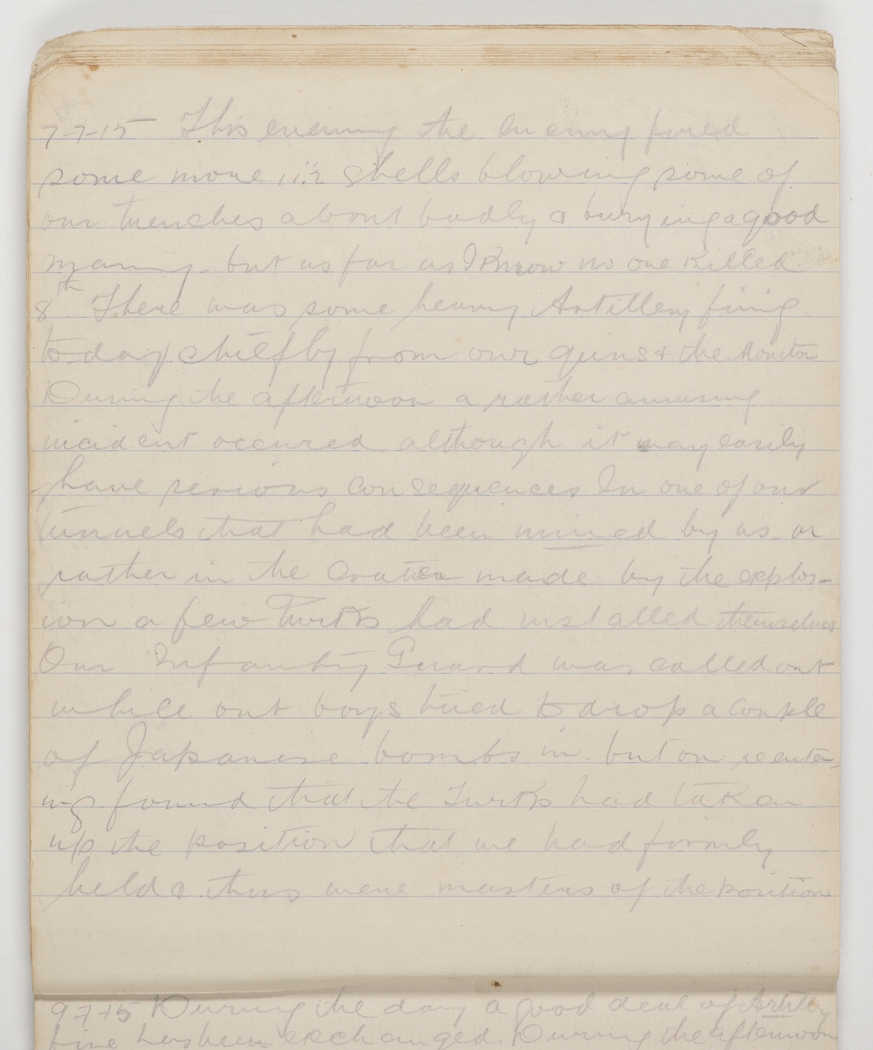 7-7-15 This evening the enemy fired
some more 11.2 shells blowing some of
our trenches about badly & burying a good
many - but as far as I know no one killed.
8th There was some heavy Artillery firing
to-day chiefly from our guns & the Monitor
During the afternoon a rather amusing
incident occured although it may easily
have serious consequences In one of our
tunnels that had been mined by us or
rather in the crater made by the explos-
ion a few Turks had installed themselves
Our Infantry Guard was called out
while out boys tried to drop a couple
of Japanese bombs in but on reenter-
ing found that the Turks had taken
up the position that we had formly
held & thus were masters of the position
9-7-15 During the day a good deal of Artillery
fire has been exchanged. During the afternoon